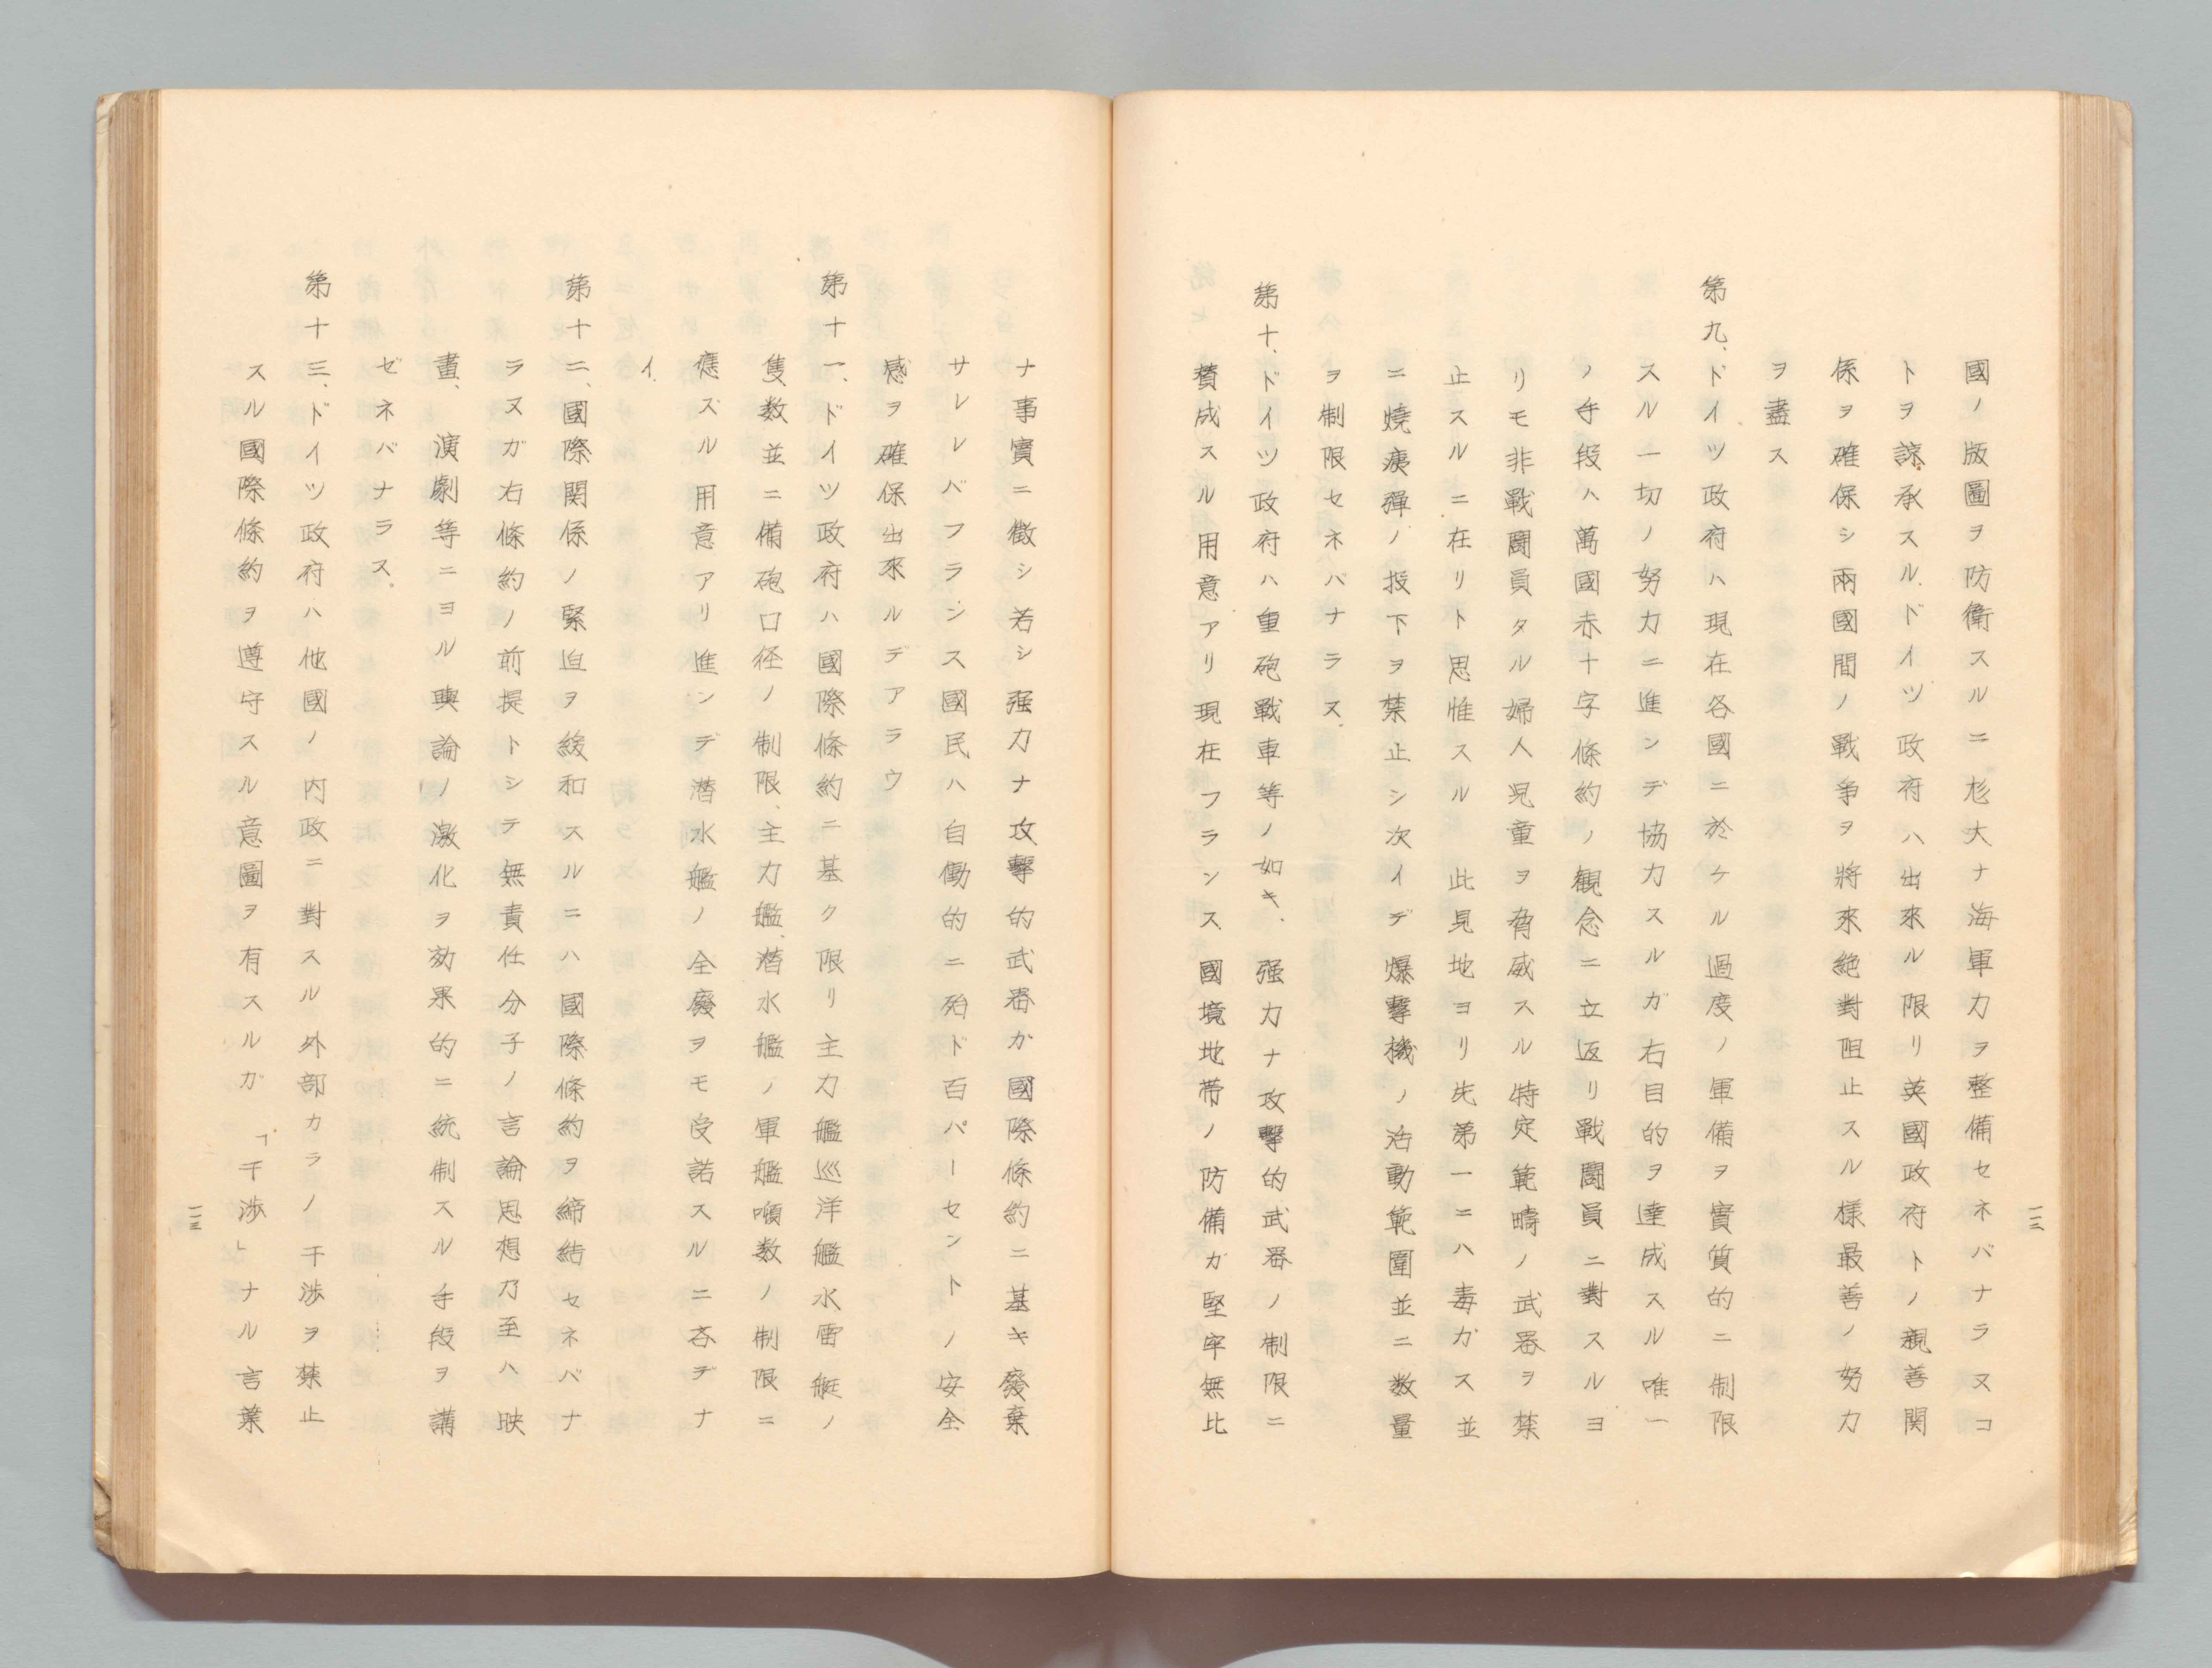 國ノ版圖ヲ防衛スルニ尨大ナ海軍力ヲ整備セネバナラヌコ
トヲ諒承スル、ドイツ政府ハ出來ル限リ英國政府トノ親善関
係ヲ確保シ兩國間ノ戰爭ヲ將來絶對阻止スル樣最善ノ努力
ヲ盡ス
第九、ドイツ政府ハ現在各國ニ於ケル過度ノ軍備ヲ實質的ニ制限
スル一切ノ努力ニ進ンデ協力スルガ右目的ヲ達成スル唯一
ノ手段ハ萬國赤十字條約ノ観念ニ立返リ戰闘員ニ對スルヨ
リモ非戰闘員タル婦人児童ヲ脅威スル特定範疇ノ武器ヲ禁
止スルニ在リト思惟スル 此見地ヨリ先第一ニハ毒ガス並
ニ燒夷彈ノ投下ヲ禁止シ次イデ爆擊機ノ活動範圍並ニ数量
ヲ制限セネバナラヌ
第十、ドイツ政府ハ重砲戰車等ノ如キ、強力ナ攻擊的武器ノ制限ニ
賛成スル用意アリ現在フランス國境地帯ノ防備ガ堅牢無比
一一二
ナ事實ニ徴シ若シ强力ナ攻擊的武器カ國際條約ニ基キ廢棄
サレレバフランス國民ハ自働的ニ殆ド百パーセントノ安全
感ヲ確保出來ルデアラウ
第十一、ドイツ政府ハ國際條約ニ基ク限リ主力艦巡洋艦水雷艇ノ
隻数並ニ備砲口径ノ制限、主力艦、潜水艦ノ軍艦噸数ノ制限ニ
應ズル用意アリ進ンデ潜水艦ノ全廢ヲモ受諾スルニ吝デナ
イ
第十二、國際関係ノ緊迫ヲ緩和スルニハ國際條約ヲ締結セネバナ
ラヌガ右條約ノ前提トシテ無責任分子ノ言論思想乃至ハ映
畫、演劇等ニヨル輿論ノ激化ヲ効果的ニ統制スル手段ヲ講
ゼネバナラヌ。
第十三、ドイツ政府ハ他國ノ内政ニ對スル外部カラノ干渉ヲ禁止
スル國際條約ヲ遵守スル意圖ヲ有スルガ「干渉」ナル言葉
一一三